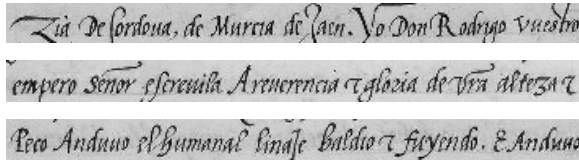 Zia De Cordoua, de Murcia de Jaen. Yo Don Rodrigo vuestro
empero señor escreuila A reuerencia τ gloria de vr̃a alteza τ
Peco Anduuo el humanal linaje baldio τ fuyendo. E Anduuo